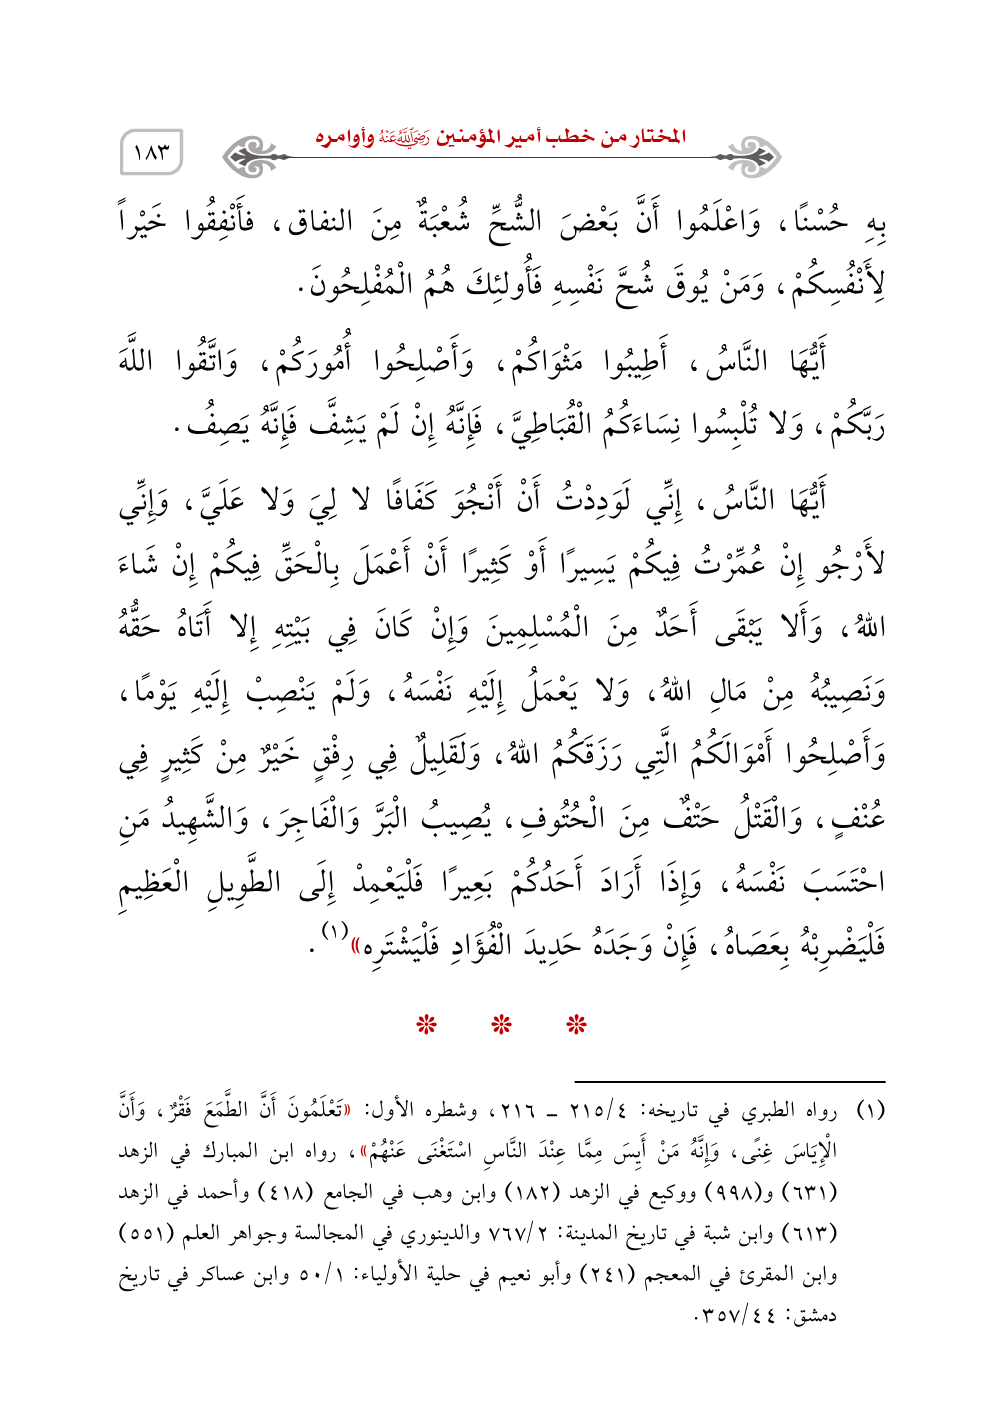 المختار من خطب أمير المؤمنين رضي الله عنه وأوامره
١٨٣
بِهِ حُسْنًا، وَاعْلَمُوا أَنَّ بَعْضَ الشُّحِّ شُعْبَةٌ مِنَ النفاق، فأَنْفِقُوا خَيْراً
لِأَنْفُسِكُمْ، وَمَنْ يُوقَ شُحَّ نَفْسِهِ فَأُولئِكَ هُمُ الْمُفْلِحُونَ.
أَيُّهَا النَّاسُ، أَطِيبُوا مَثْوَاكُمْ، وَأَصْلِحُوا أُمُورَكُمْ، وَاتَّقُوا اللَّهَ
رَبَّكُمْ، وَلا تُلْبِسُوا نِسَاءَكُمُ الْقُبَاطِيَّ، فَإِنَّهُ إِنْ لَمْ يَشِفَّ فَإِنَّهُ يَصِفُ.
أَيُّهَا النَّاسُ، إِنِّي لَوَدِدْتُ أَنْ أَنْجُوَ كَفَافًا لا لِيَ وَلا عَلَيَّ، وَإِنِّي
لأَرْجُو إِنْ عُمِّرْتُ فِيكُمْ يَسِيرًا أَوْ كَثِيرًا أَنْ أَعْمَلَ بِالْحَقِّ فِيكُمْ إِنْ شَاءَ
اللهُ، وَأَلا يَبْقَى أَحَدٌ مِنَ الْمُسْلِمِينَ وَإِنْ كَانَ فِي بَيْتِهِ إِلا أَتَاهُ حَقُّهُ
وَنَصِيبُهُ مِنْ مَالِ اللهُ، وَلا يَعْمَلُ إِلَيْهِ نَفْسَهُ، وَلَمْ يَنْصِبْ إِلَيْهِ يَوْمًا،
وَأَصْلِحُوا أَمْوَالَكُمُ الَّتِي رَزَقَكُمُ اللهُ، وَلَقَلِيلٌ فِي رِفْقٍ خَيْرٌ مِنْ كَثِيرٍ فِي
عُنْفٍ، وَالْقَتْلُ حَتْفٌ مِنَ الْحُتُوفِ، يُصِيبُ الْبَرَّ وَالْفَاجِرَ، وَالشَّهِيدُ مَنِ
احْتَسَبَ نَفْسَهُ، وَإِذَا أَرَادَ أَحَدُكُمْ بَعِيرًا فَلْيَعْمِدْ إِلَى الطَّوِيلِ الْعَظِيمِ
فَلْيَضْرِبْهُ بِعَصَاهُ، فَإِنْ وَجَدَهُ حَدِيدَ الْفُؤَادِ فَلْيَشْتَرِه»(١).
(١) رواه الطبري في تاريخه: ٢١٥/٤ ـ ٢١٦، وشطره الأول: «تَعْلَمُونَ أَنَّ الطَّمَعَ فَقْرٌ، وَأَنَّ
الْإِيَاسَ غِنًى، وَإِنَّهُ مَنْ أَيِسَ مِمَّا عِنْدَ النَّاسِ اسْتَغْنَى عَنْهُمْ»، رواه ابن المبارك في الزهد
(٦٣١) و(٩٩٨) ووكيع في الزهد (١٨٢) وابن وهب في الجامع (٤١٨) وأحمد في الزهد
(٦١٣) وابن شبة في تاريخ المدينة: ٧٦٧/٢ والدينوري في المجالسة وجواهر العلم (٥٥١)
وابن المقرئ في المعجم (٢٤١) وأبو نعيم في حلية الأولياء: ٥٠/١ وابن عساكر في تاريخ
دمشق: ٣٥٧/٤٤.